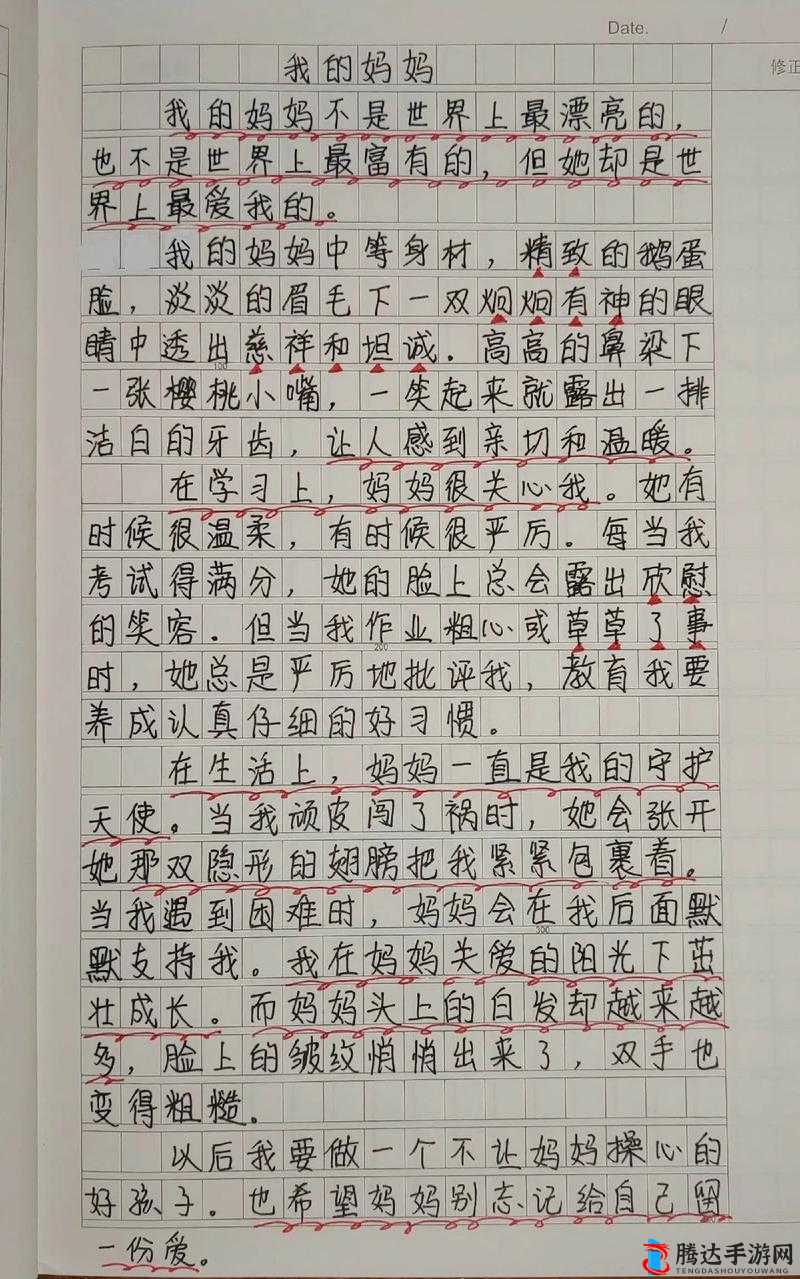 Date. /
修正
我的妈妈
我的妈妈不是世界上最漂亮的，
也不是世界上最富有的，但她却是世
界上最爱我的。
我的妈妈中等身材，精致的鹅蛋
脸，淡淡的眉毛下一双炯炯有神的眼
睛中透出慈祥和坦诚。高高的鼻梁下
100
一张樱桃小嘴，一笑起来就露出一排
洁白的牙齿，让人感到亲切和温暖。
在学习上，妈妈很关心我。她有
时候很温柔，有时候很严厉。每当我
考试得满分，她的脸上总会露出欣慰
的笑容。但当我作业粗心或草草了事
200
时，她总是严厉地批评我，教育我要
养成认真仔细的好习惯。
在生活上，妈妈一直是我的守护
天使。当我顽皮闯了祸时，她会张开
她那双隐形的翅膀把我紧紧包裹着。
当我遇到困难时，妈妈会在我后面默
300
默支持我。我在妈妈关爱的阳光下茁
壮成长。而妈妈头上的白发却越来越
多，脸上的皱纹悄悄出来了，双手也
变得粗糙。
以后我要做一个不让妈妈操心的
好孩子。也希望妈妈别忘记给自己留
一份爱。
腾达手游网
TENGDASHOUYOUWANG